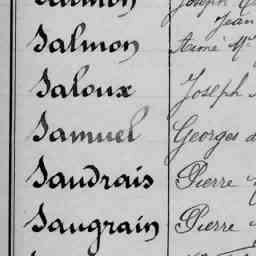 Salmon Joseph
Jean
Salmon Aimé
Saloux Joseph
Samuel Georges
Saudrais Pierre
Saugrain Pierre